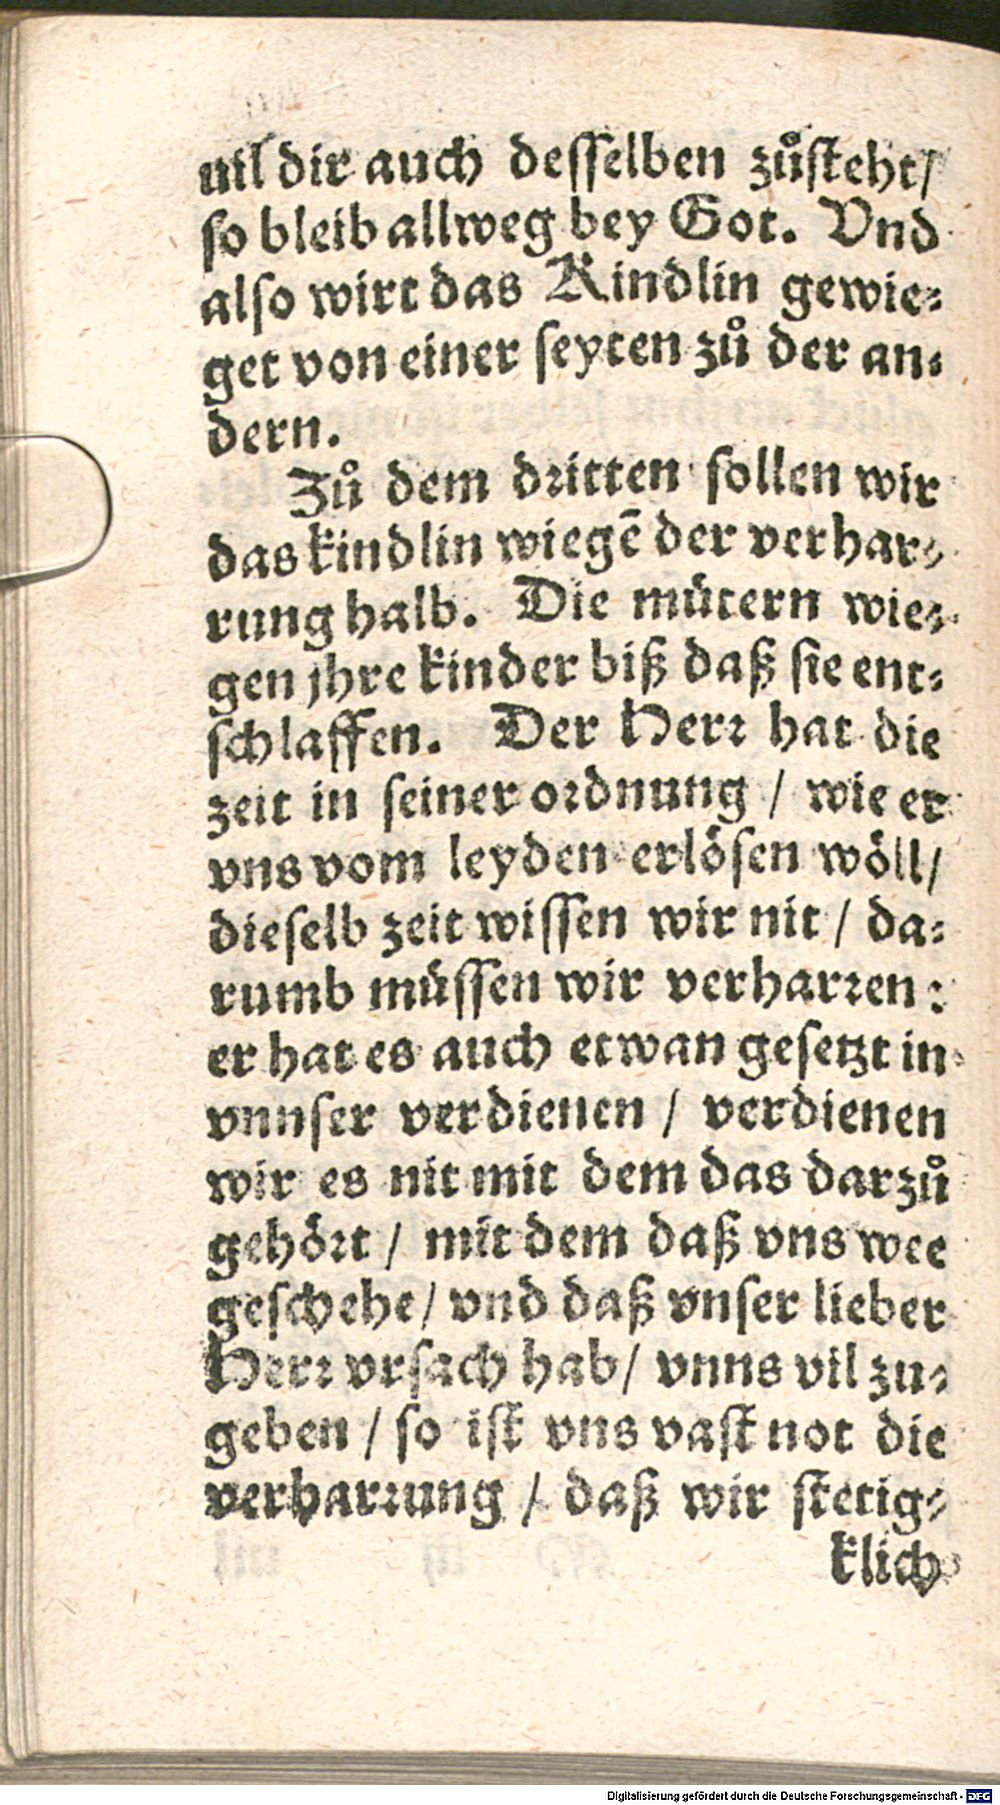 vil dir auch desselben zuͦsteht/
so bleib allweg bey Got. Vnd
also wirt das Kindlin gewie⸗
get von einer seyten zuͦ der an⸗
dern.
Zuͦ dem dritten sollen wir
das kindlin wiegē der verhar⸗
rung halb. Die mütern wie⸗
gen jhre kinder biß daß sie ent⸗
schlaffen. Der Herr hat die
zeit in seiner ordnung / wie er
vns vom leyden erlösen wöll/
dieselb zeit wissen wir nit / da⸗
rumb müssen wir verharren :
er hat es auch etwan gesetzt in
vnnser verdienen / verdienen
wir es nit mit dem das darzuͦ
gehört / mit dem daß vns wee
geschehe/ vnd daß vnser lieber
Herr vrsach hab/ vnns vil zu⸗
geben / so ist vns vast not die
verharrung / daß wir stetig⸗
klich
Digitalisierung gefördert durch die Deutsche Forschungsgemeinschaft - DFG